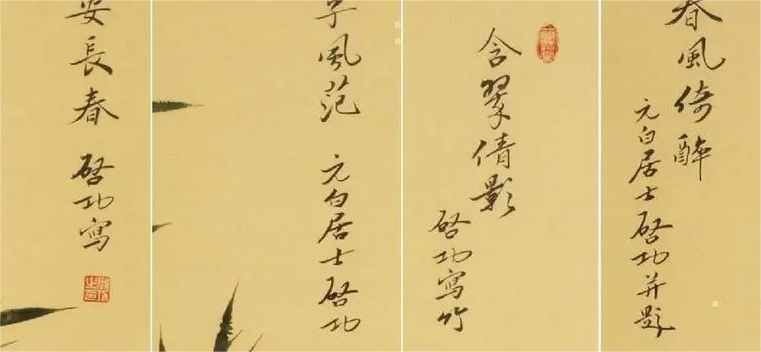 安長春 啓功寫
子風范 元白居士啓功
含翠倩影
啓功寫竹
春風倚醉
元白居士啓功并題